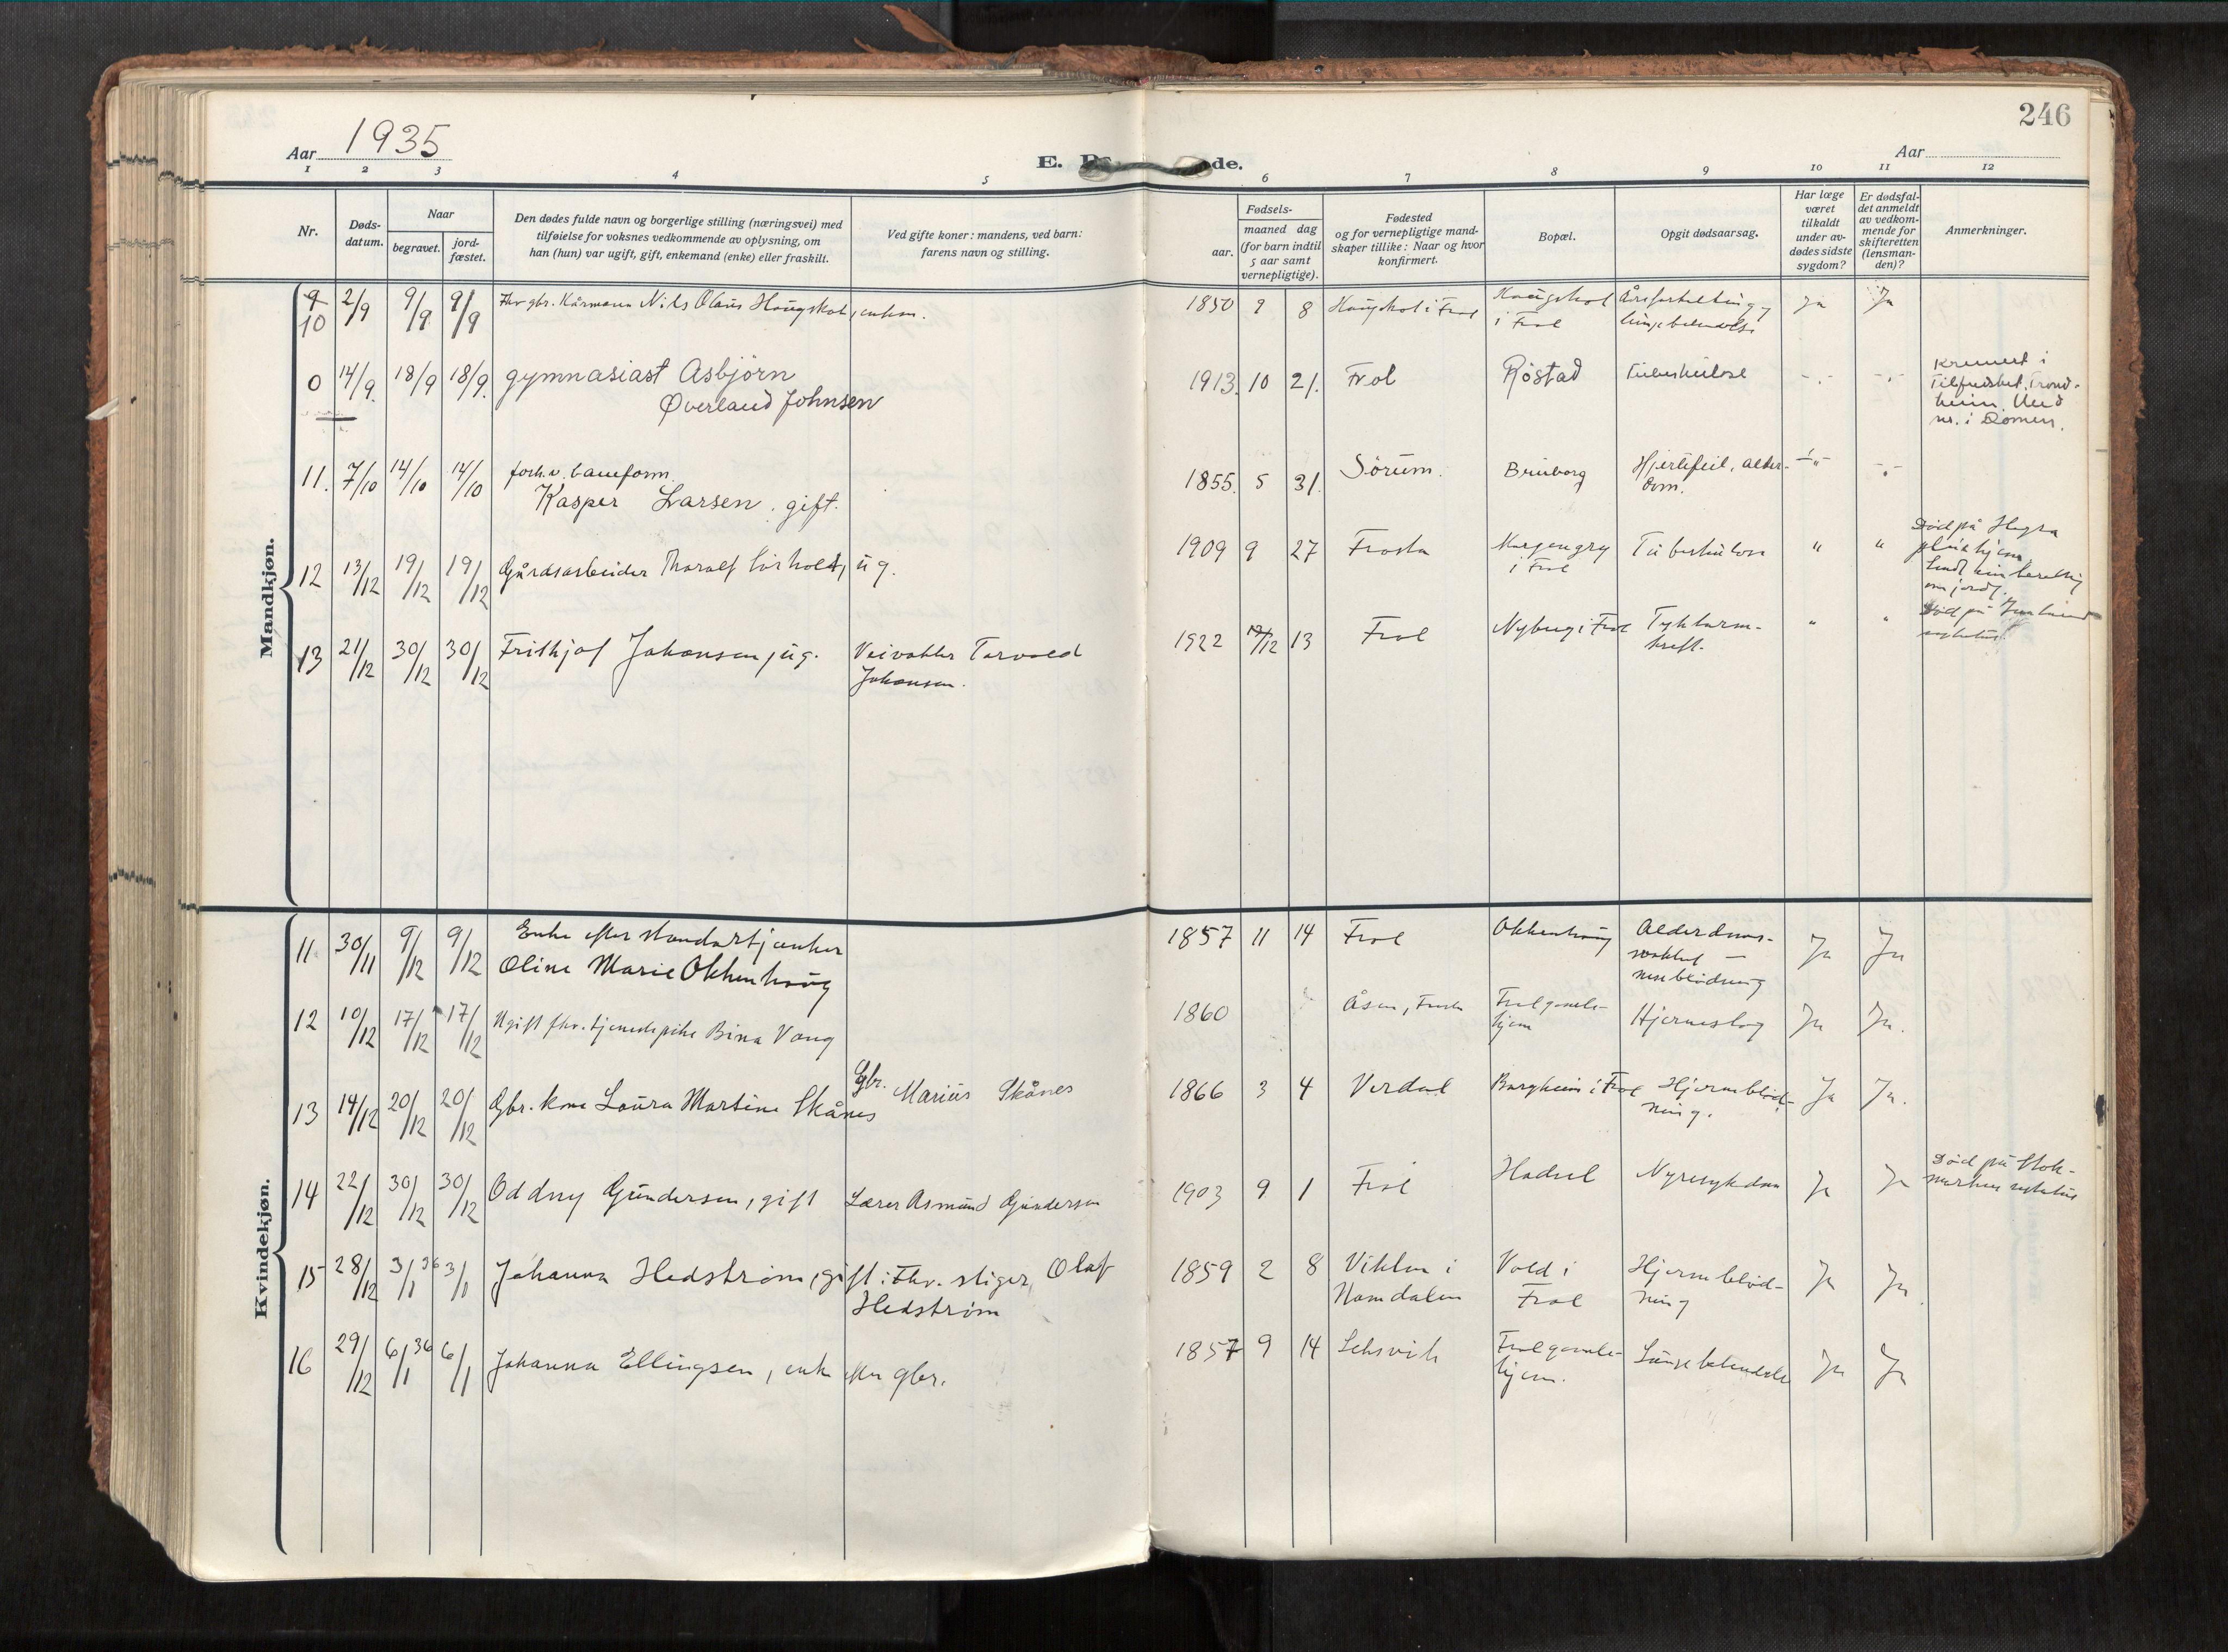 246
Aar 1935
E. D de.
Aar
1 2 3 4 5 6 7 8 9 10 11 12
Nr.
Døds-
datum.
Naar
begravet.
jord-
fæstet.
Den dødes fulde navn og borgerlige stilling (næringsvei) med
tilføielse for voksnes vedkommende av oplysning, om
han (hun) var ugift, gift, enkemand (enke) eller fraskilt.
Ved gifte koner: mandens, ved barn:
farens navn og stilling.
Fødsels-
aar.
maaned dag
(for barn indtil
5 aar samt
vernepligtige).
Fødested
og for vernepligtige mand-
skaper tillike: Naar og hvor
konfirmert.
Bopæl.
Opgit dødsaarsag.
Har læge
været
tilkaldt
under av-
dødes sidste
sygdom?
Er dødsfal-
det anmeldt
av vedkom-
mende for
skifteretten
(lensman-
den)?
Anmerkninger.
Mandkjøn.
9
10 2/9 9/9 9/9 Fhv. gbr. Kårmann Nils Olaus Haugskot, enkem. 1850 9 8 Haugskot i Frol Haugskot
i Frol Åreforkalkning,
lungebetendelse Ja Ja
0 14/9. 18/9 18/9. gymnasiast Asbjörn
Øverland Johnsen 1913. 10 21. Frol Röstad Tuberkulose -"- -"- Kremert i
Tilfredshet, Trond-
heim. Med
nr. i Domen.
11. 7/10 14/10 14/10 forh.v. baneform.
Kasper Larsen. gift. 1855. 5 31. Sörum. Brüborg Hjertefeil, alder-
dom. -"- -"-
12 13/12 19/12 19/12 Gårdsarbeider Thoralf Sörholt, ug. 1909 9 27 Frosta Morgengry
i Frol Tuberkulose " " Död på Hegra
pleiehjem.
Sendt min beretning
om jordf.
13 21/12 30/12 30/12 Frithjof Johansen, ug. Veivokter Torvald
Johansen. 1922 12 13 Frol Nyborg i Frol Tyktarm-
kreft. " " Död på Innherred
sykehus
Kvindekjøn.
11 30/11 9/12 9/12 Enke efter
Oline Marie Okkenhaug 1857 11 14 Frol Okkenhaug Alderdoms-
svakhet —
Ja Ja
12 10/12 17/12 17/12 Ugift fhv. tjenestepike Bina Vang 1860 Åsen, Frosta Frol gamle-
hjem Hjerneslag Ja Ja.
13 14/12 20/12 20/12 Gbr. kone Laura Martine Skånes Gbr. Marius Skånes 1866 3 4 Verdal Borgheim i Frol Hjerneblød-
ning. Ja Ja.
14 22/12 30/12 30/12 Oddny Gundersen, gift Lærer Asmund Gundersen 1903 9 1 Frol Hadsel Nyresykdom Ja Ja Död på Stok-
marknes sykehus
15 28/12 3/1 36 3/1 Johanna Hedström, gift : Fhv. stiger, Olaf
Hedström 1859 2 8 Viklem i
Namdalen Vold i
Frol Hjerneblød-
ning Ja Ja.
16 29/12 6/1 36 6/1 Johanna Ellingsen, enke efter gbr. 1857 9 14 Leksvik Frol gamle-
hjem. Lungebetendelse Ja Ja